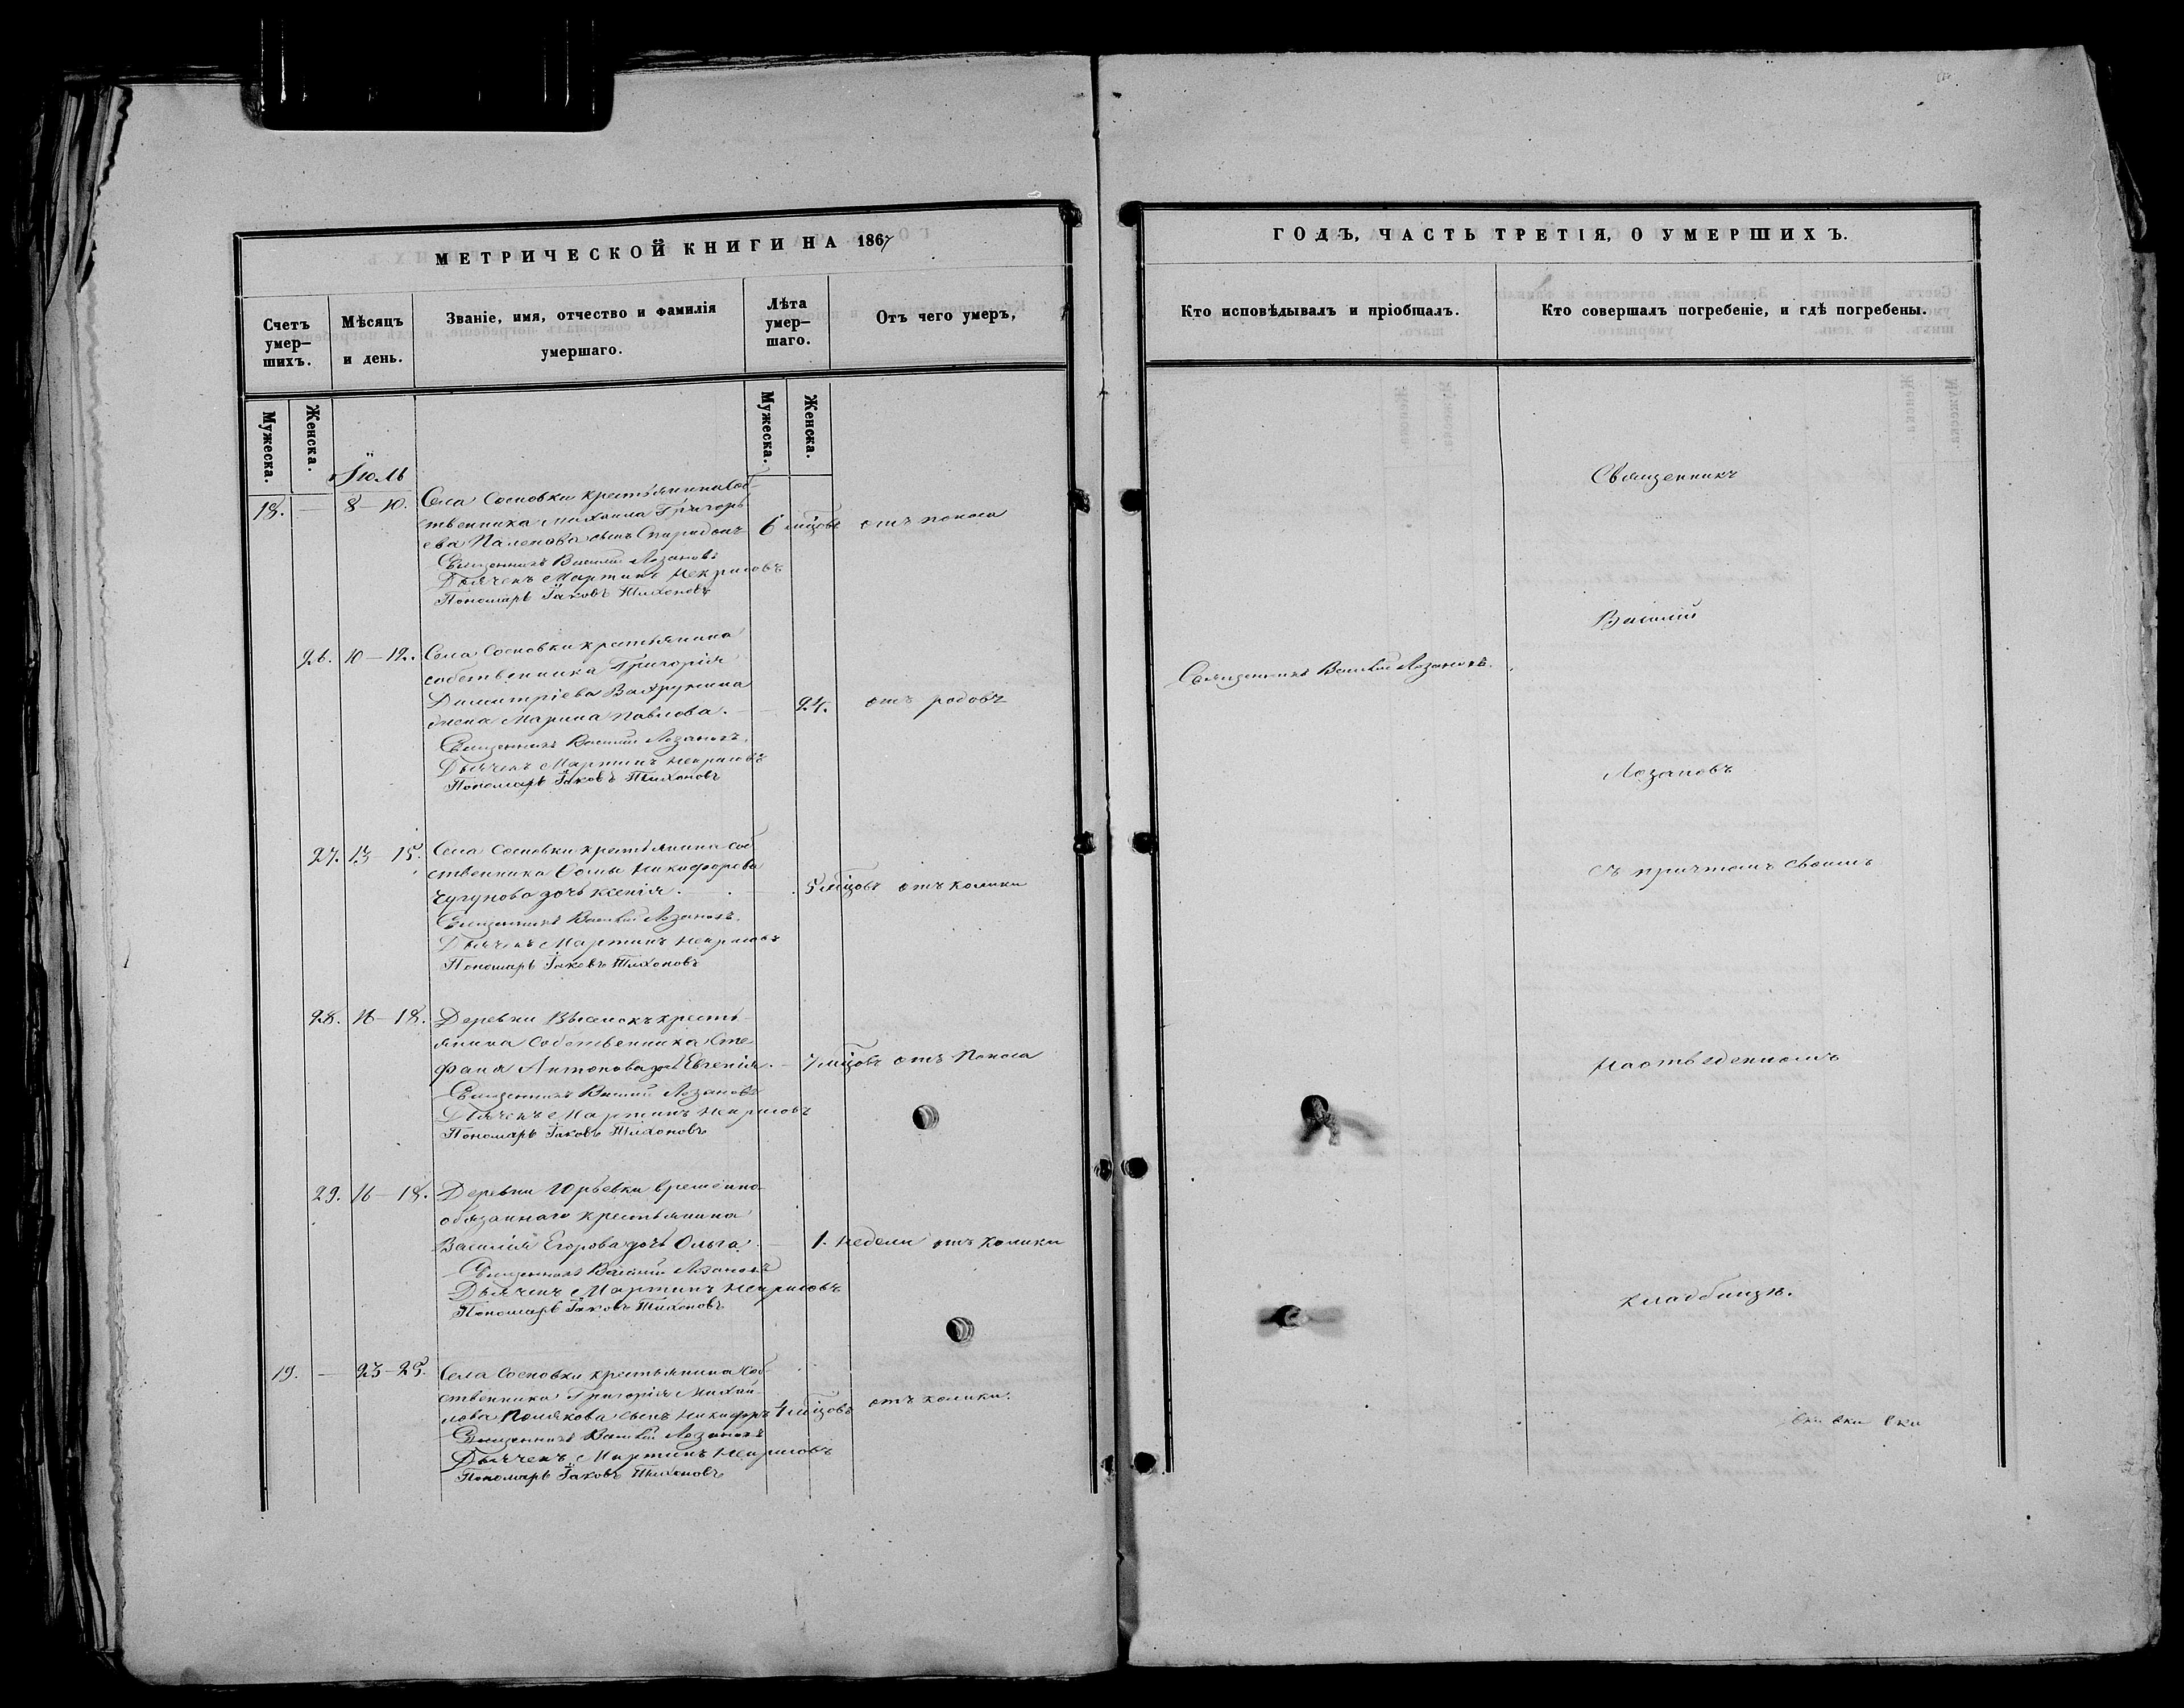 МЕТРИЧЕСКОЙ КНИГИ НА 1867
Счетъ умер–шихъ.
Мѣсяцъ и день.
Званіе, имя, отчество и фамилія умершаго.
Лѣта умер–шаго.
Отъ чего умеръ,
Мужеска.
Женска.
Мужеска.
Женска.
Іюль
18. — 8–10. Села Сосновки крестьянина Соб-
ственника Михаила Григорь
ева сынъ Спиридонъ 6 мѣцовъ отъ поноса
Священникъ Василій Лозановъ
Дьячекъ Мартинъ Некрасовъ
Пономарь Іаковъ Тихоновъ
26. 10–12. Села Сосновки крестьянина
собственника Григорія
Димитріева Вахрушина
жена Марина Павлова. — 24. отъ родовъ
Священникъ Василій Лозановъ.
Дьячекъ Мартинъ Некрасовъ
Пономарь Іаковъ Тихоновъ
27. 13–15. Села Сосновки крестьянина соб
ственника Ѳомы Никифорова
Чугунова дочь Ксенія. — 5 мѣцовъ отъ колики
Священникъ Василій Лозановъ.
Дьячекъ Мартинъ Некрасовъ
Пономарь Іаковъ Тихоновъ
28. 16–18. Деревни крестья-
янина Собственника Сте
фана Антонова дочь Евгенія. — 7 мѣцовъ отъ поноса
Священникъ Василій Лозановъ
Дьячекъ Мартинъ Некрасовъ
Пономарь Іаковъ Тихоновъ
29. 16–18. Деревни Юрьевки временно-
обязаннаго крестьянина
Василія Егорова дочь Ольга. — 1. недели отъ колики
Священникъ Василій Лозановъ
Дьячекъ Мартинъ Некрасовъ
Пономарь Іаковъ Тихоновъ
19. — 23–25. Села Сосновки крестьянина Соб-
ственника Григорія Михай-
лова Полякова сынъ Никифоръ 4 мѣцовъ отъ колики.
Священникъ Василій Лозановъ
Дьячекъ Мартинъ Некрасовъ
Пономарь Іаковъ Тихоновъ
ГОДЪ, ЧАСТЬ ТРЕТІЯ, О УМЕРШИХЪ.
Кто исповѣдывалъ и пріобщалъ.
Кто совершалъ погребеніе, и гдѣ погребены.
Священникъ
Василій
Священникъ Василій Лозановъ.
Лозановъ
съ причтомъ своимъ
На отведенномъ
кладбищѣ.